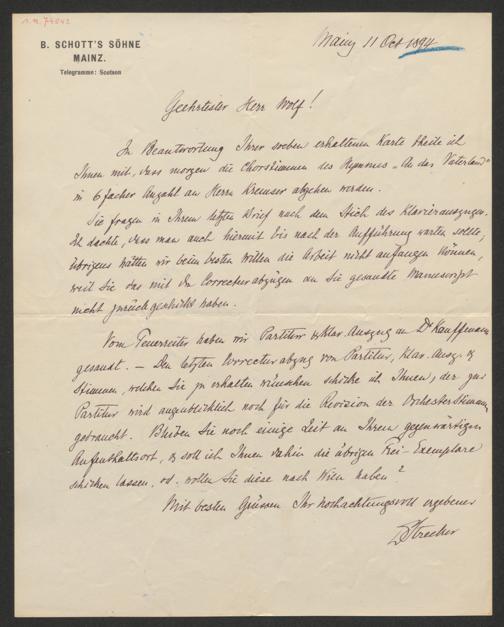 B. SCHOTT'S SÖHNE
MAINZ.
Telegramme: Scotson
Mainz 11 Oct 1894
Geehrtester Herr Wolf!
In Beantwortung Ihrer soeben erhaltenen Karte theile ich
Ihnen mit, dass morgen die Chorstimmen des Hymnus „An das Vaterland"
in 6 facher Anzahl an Herrn Kremser abgehen werden.
Sie fragen in Ihrem letzten Brief nach dem Stich des Klavierauszuges.
Ich dachte, dass man auch hiermit bis nach der Aufführung warten sollte,
übrigens hätten wir beim besten Willen die Arbeit nicht anfangen können,
weil Sie das mit den Correcturabzügen an Sie gesandte Manuscript
nicht zurückgeschickt haben.
Vom Feuerreiter haben wir Partitur & Klav. Auszug an Dr Kauffmann
gesandt. – Den letzten Correcturabzug von Partitur, Klav. Ausz. &
Stimmen, welchen Sie zu erhalten wünschen schicke ich Ihnen, der zur
Partitur wird augenblicklich noch für die Revision der Orchesterstimmen
gebraucht. Bleiben Sie noch einige Zeit an Ihrem gegenwärtigen
Aufenthaltsort, & soll ich Ihnen dahin die übrigen Frei-Exemplare
schicken lassen, od. wollen Sie diese nach Wien haben?
Mit besten Grüssen Ihr hochachtungsvoll ergebener
DStrecker